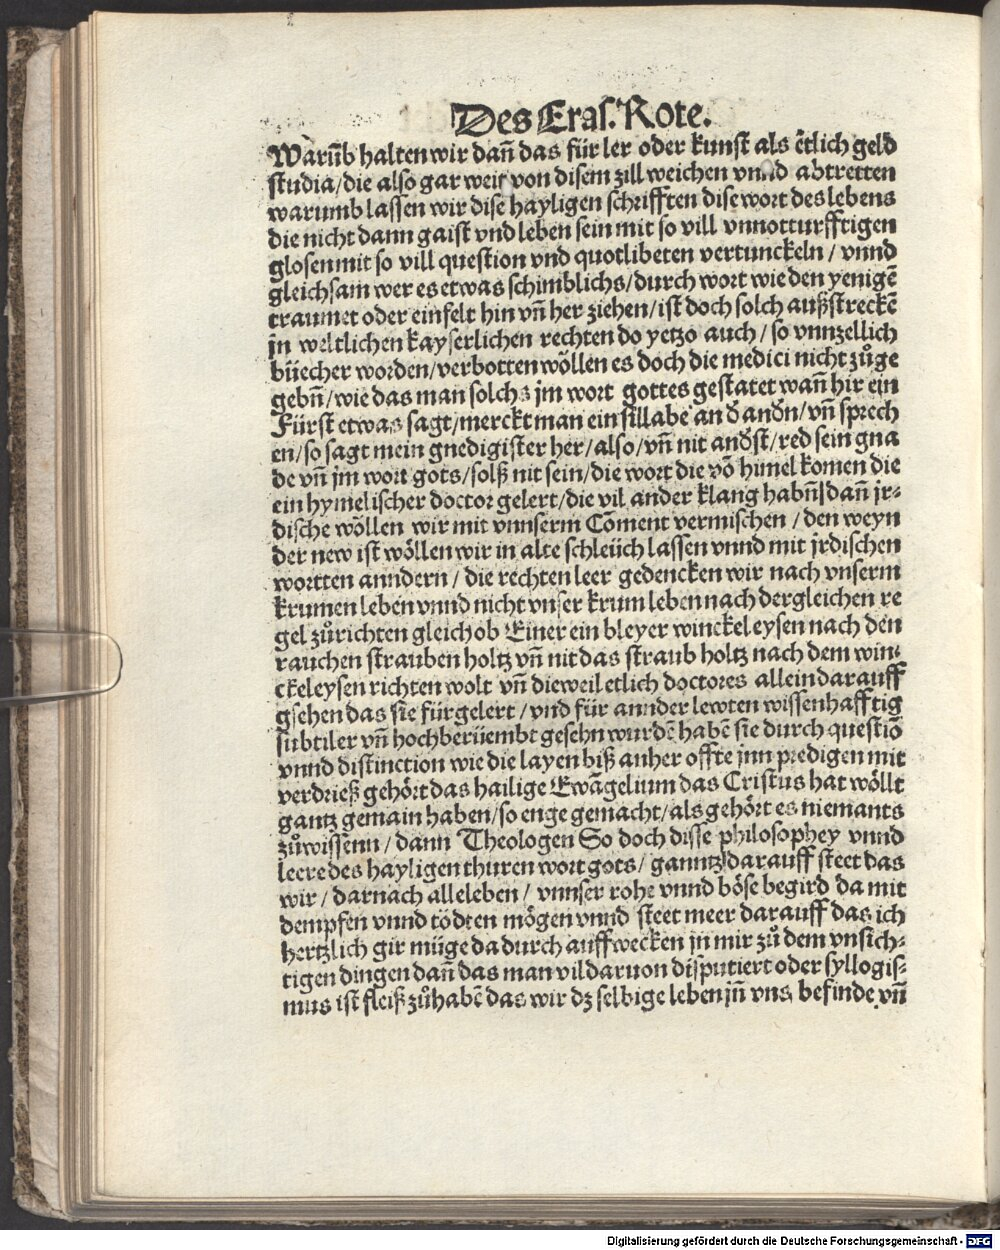 Des Eras. Rote.
Warūb halten wir dañ das für ler oder kunst als etlich geld
studia/die also gar weit von disem zill weichen vnnd abtretten
warumb lassen wir dise hayligen schrifften dise wort des lebens
die nicht dann gaist vnd leben sein mit so vill vnnotturfftigen
glosen mit so vill question vnd quotlibeten vertunckeln / vnnd
gleichsam wer es etwas schimblichs/durch wort wie den yenigē
traumet oder einfelt hin vñ her ziehen/ist doch solch außstreckē
jn weltlichen kayserlichen rechten do yetzo auch/so vnnzellich
büecher worden/verbotten wöllen es doch die medici nicht zůge
gebñ/wie das man solchs jm wort gottes gestatet wañ hir ein
Fürst etwas sagt/merckt man ein sillabe an d̄ and̄n/vñ sprech
en/so sagt mein gnedigister her/also/vñ nit and̄st/red sein gna
de vñ jm wort gots/solß nit sein/die wort die vō himel komen die
ein hymelischer doctor gelert/die vil ander klang habñ dañ jr⸗
dische wöllen wir mit vnnserm Cōment vermischen / den weyn
der new ist wöllen wir in alte schleüch lassen vnnd mit jrdischen
wortten anndern / die rechten leer gedencken wir nach vnserm
krumen leben vnnd nicht vnser krum leben nach dergleichen re
gel zůrichten gleich ob Einer ein bleyer winckeleysen nach den
rauchen strauben holtz vñ nit das straub holtz nach dem win⸗
ckeleysen richten wolt vñ dieweil etlich doctores allein darauff
gsehen das sie für gelert / vnd für annder lewten wissenhafftig
subtiler vñ hochberüembt gesehn wurdē habē sie durch questiō
vnnd distinction wie die layen biß anher offte jnn predigen mit
verdrieß gehört das hailige Ewāgelium das Cristus hat wöllt
gantz gemain haben/so enge gemacht/als gehört es niemants
zůwissenn / dann Theologen So doch disse philosophey vnnd
leere des hayligen thuren wort gots/ ganntz darauff steet das
wir / darnach alle leben / vnnser rohe vnnd böse begird da mit
dempfen vnnd tödten mögen vnnd steet meer darauff das ich
hertzlich gir müge dadurch auffwecken jn mir zů dem vnsich⸗
tigen dingen dañ das man vil daruon disputiert oder syllogis⸗
mus ist fleiß zůhabē das wir dz selbige leben jñ vns befinde vñ
Digitalisierung gefördert durch die Deutsche Forschungsgemeinschaft - DFG